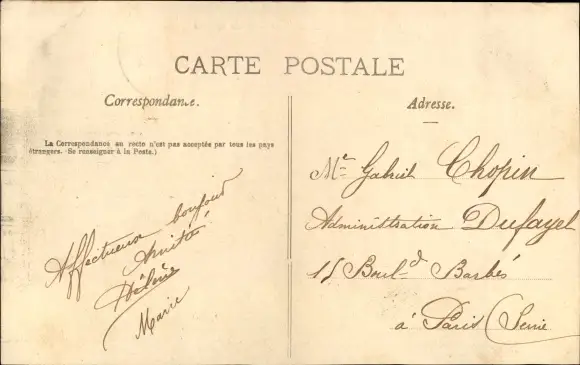 CARTE POSTALE
Correspondance.
La Correspondance au recto n'est pas acceptée par tous les pays
étrangers. (Se renseigner à la Poste.)
Affectueux bonjour
Amitié
Hélène
Marie
Adresse.
Mr Gabriel Chopin
Administration Dufayel
15 Bould Barbés
à Paris (Seine